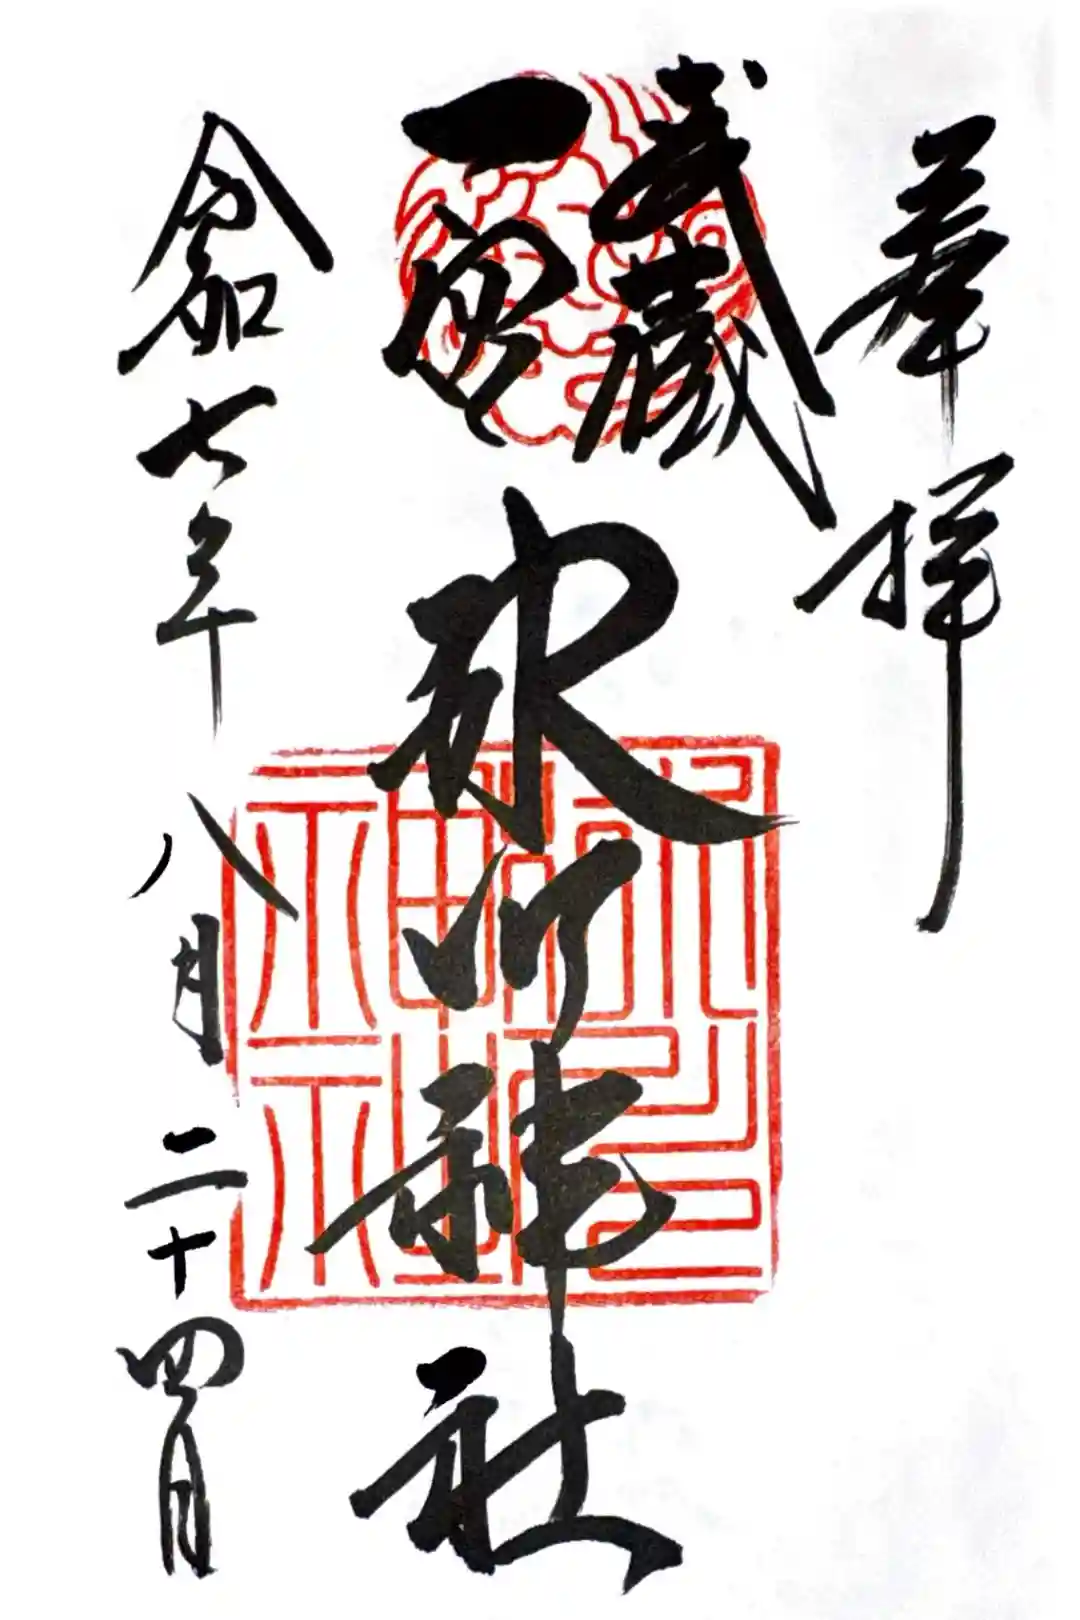 奉拝
武蔵
一宮
氷川神社
令和七年八月二十四日
氷川神社